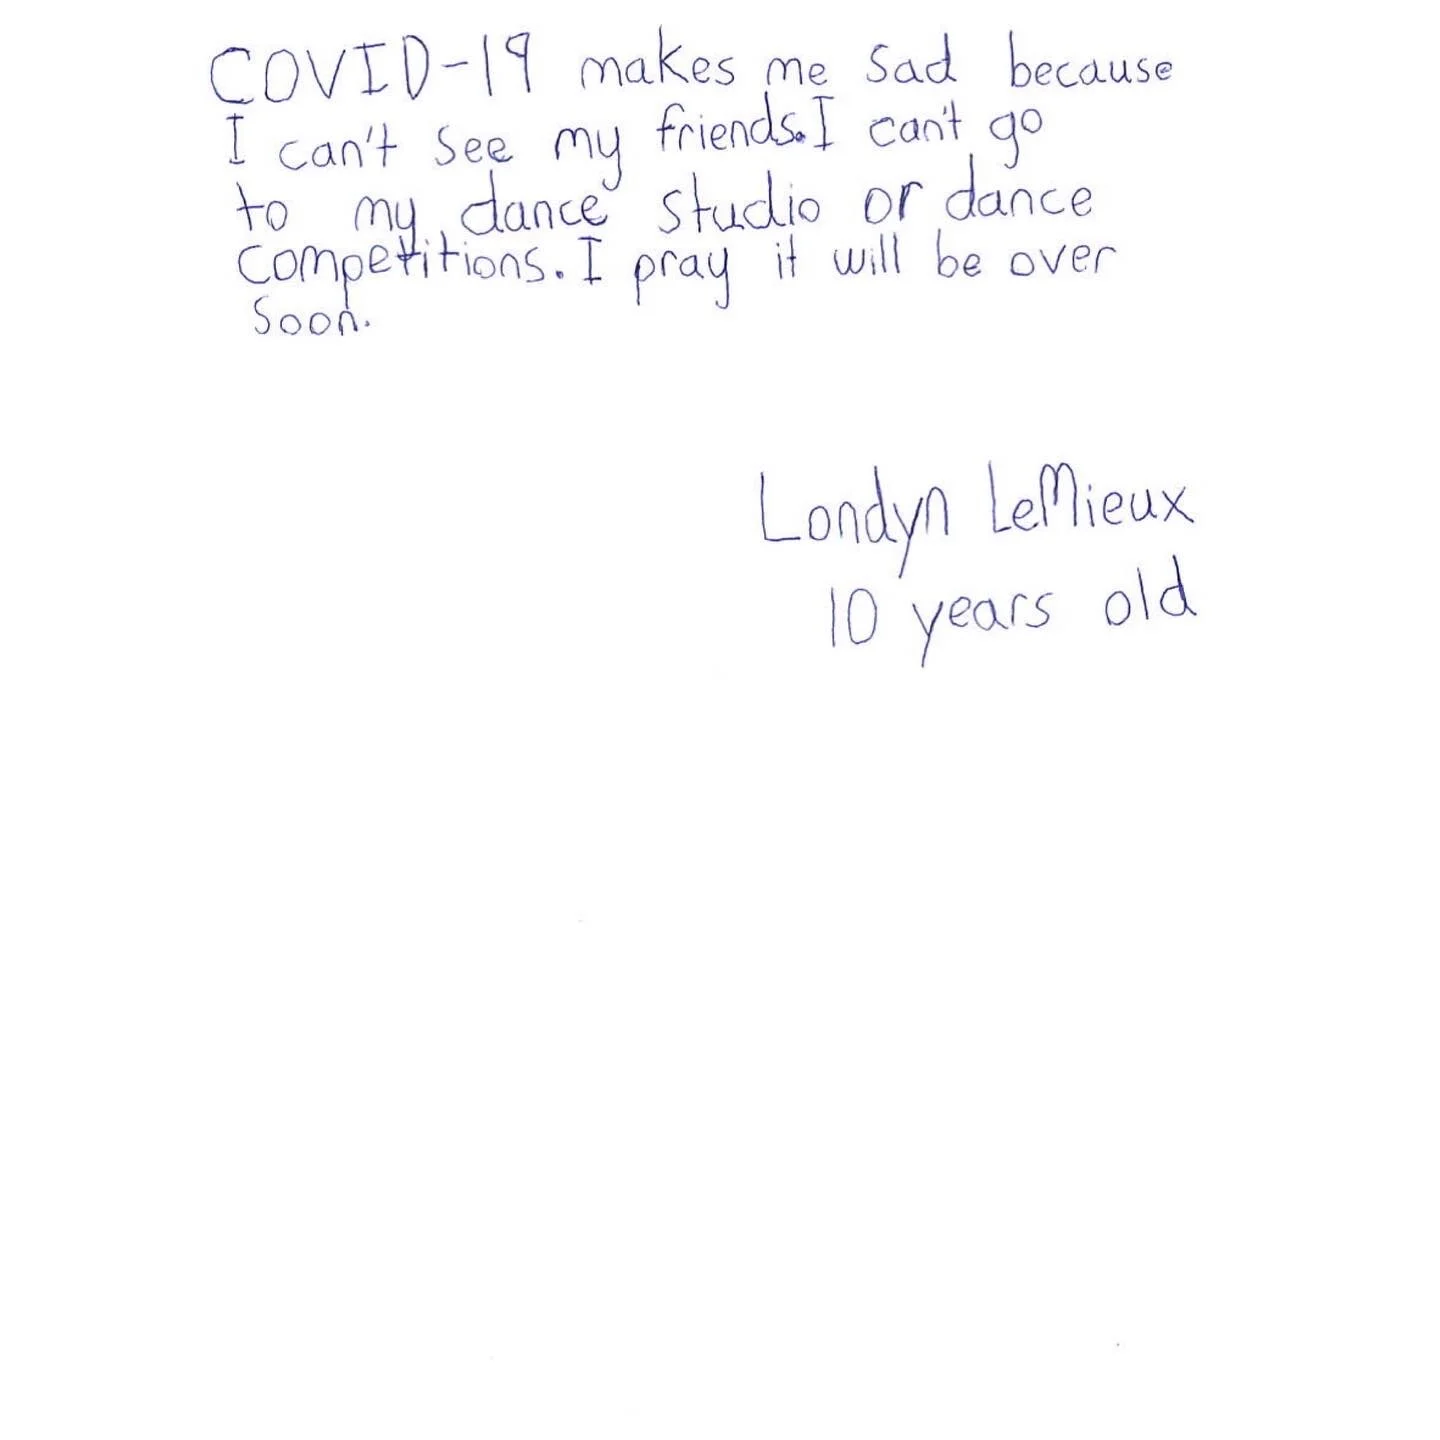 COVID-19 makes me sad because
I can't see my friends. I can't go
to my dance studio or dance
competitions. I pray it will be over
soon.
Londyn LeMieux
10 years old